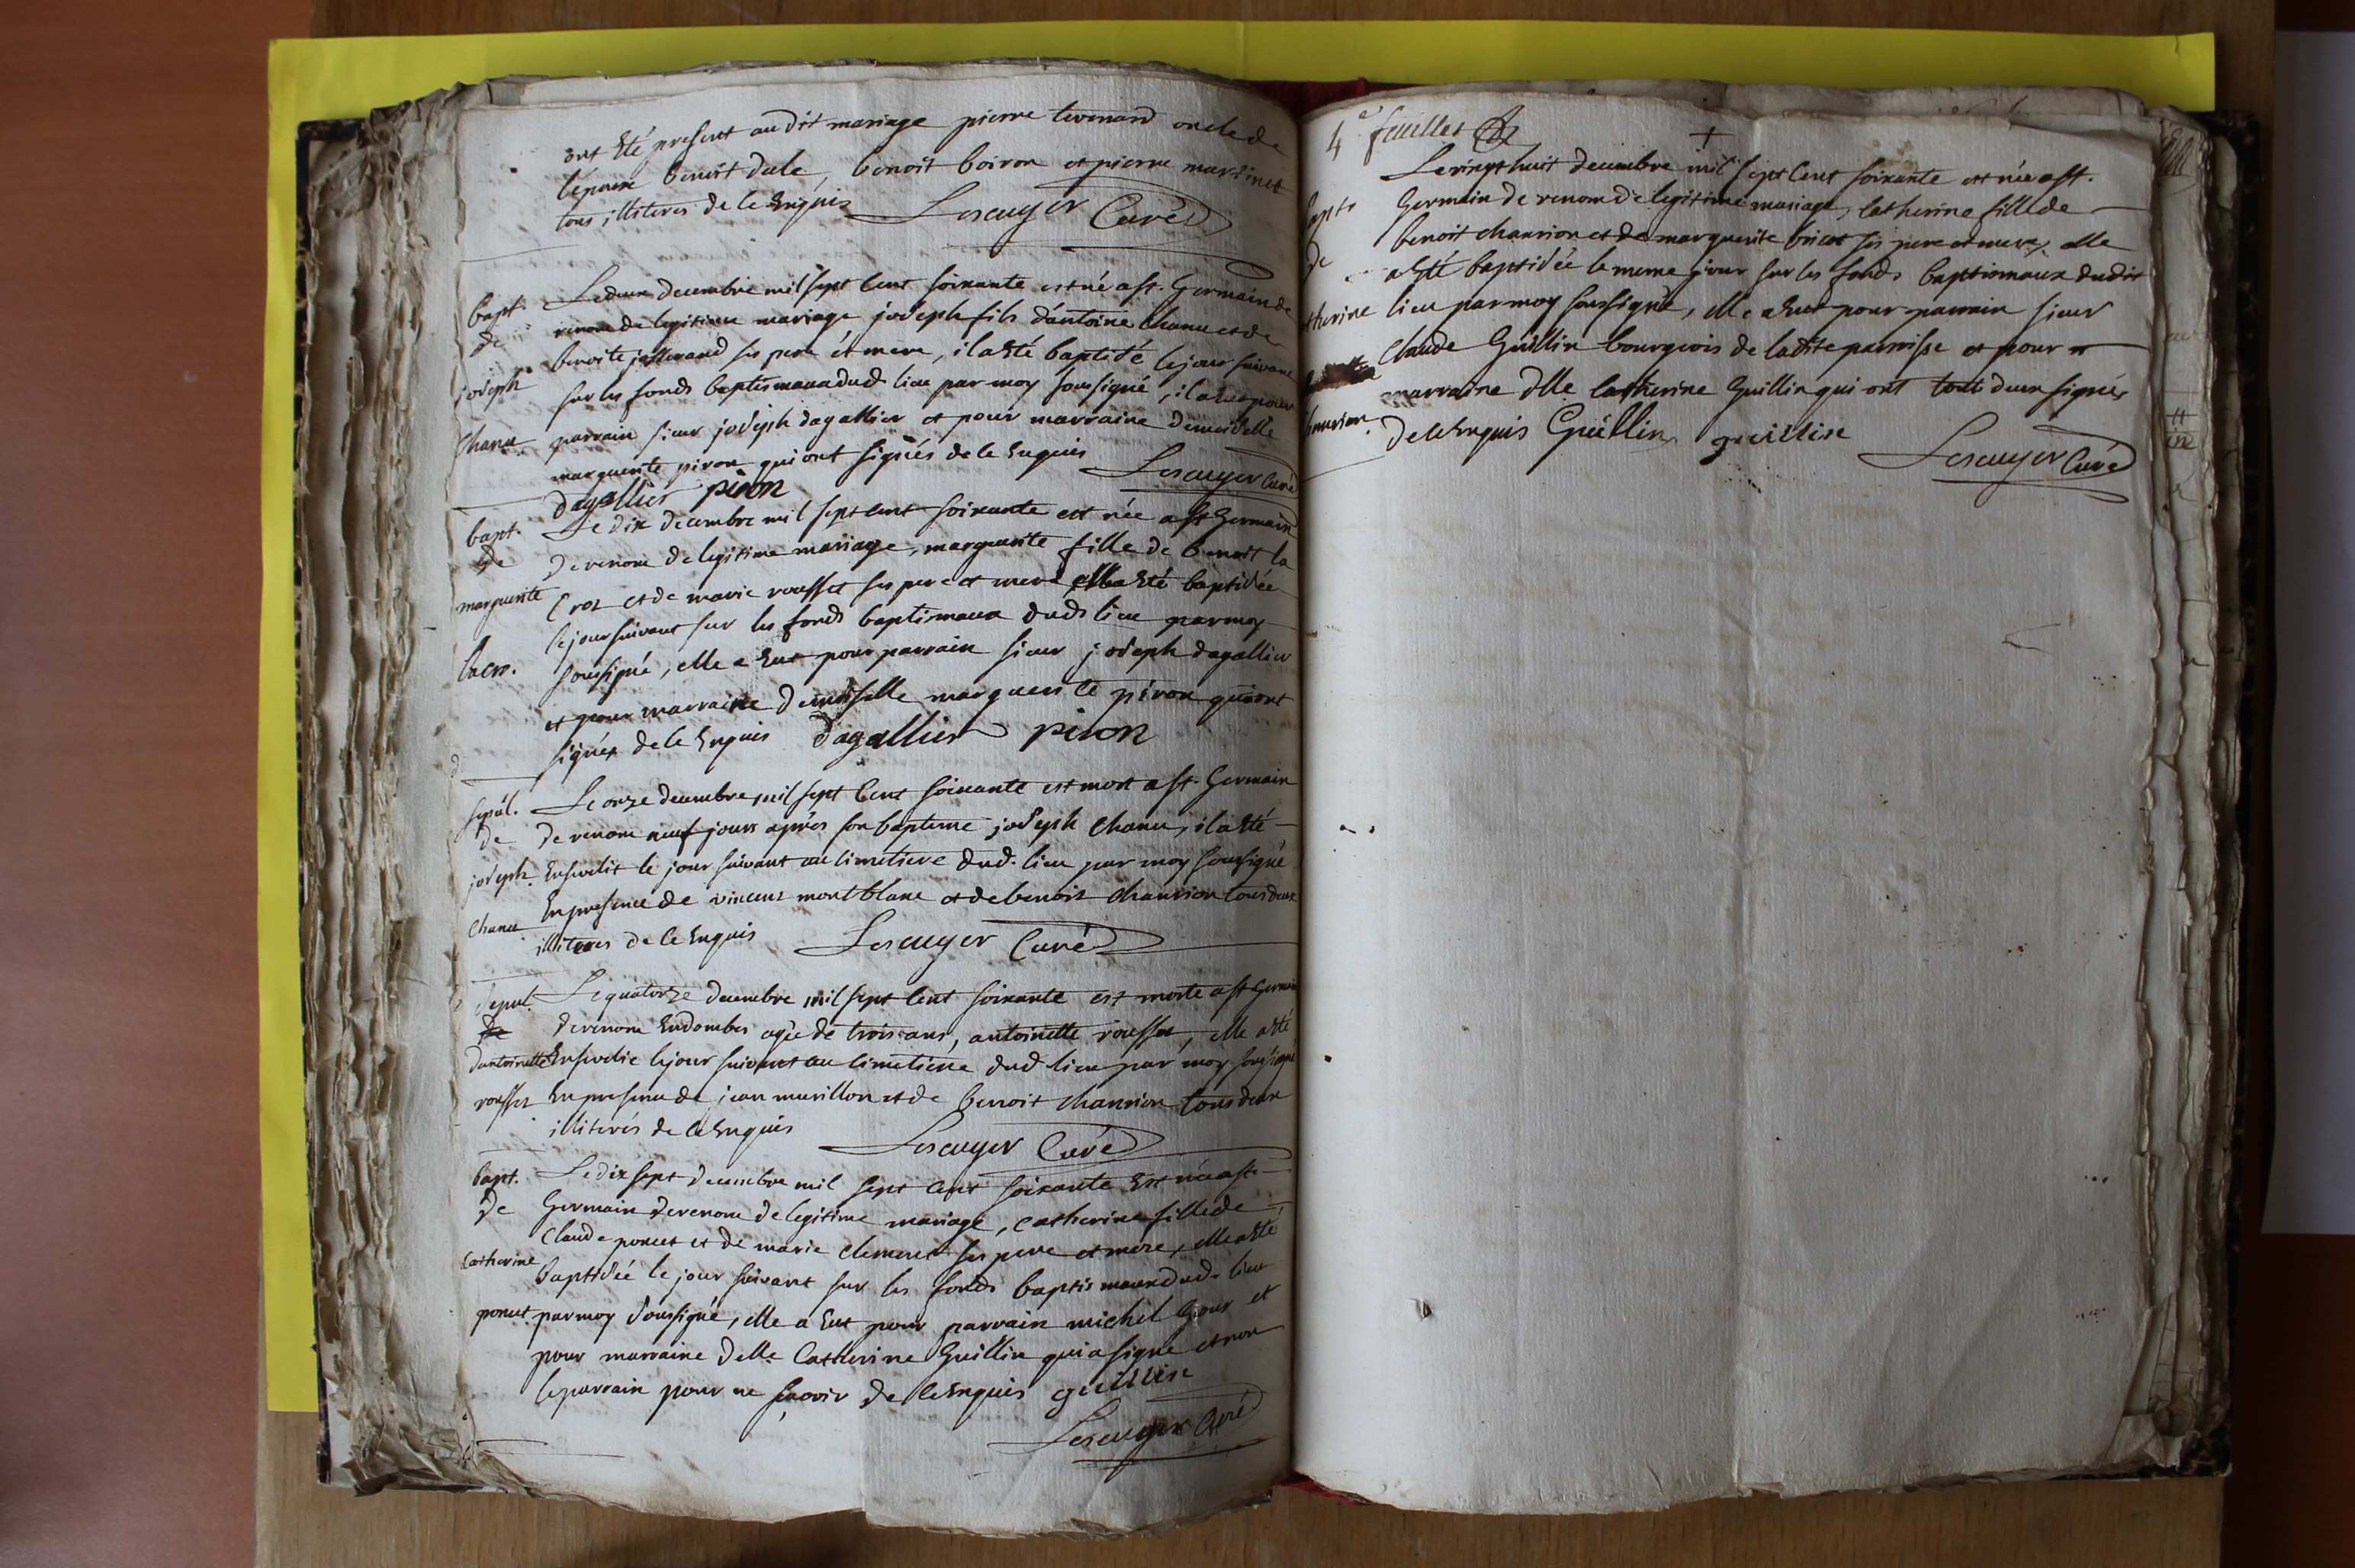 ont Eté present audit mariage pierre oncle de
l'épouse benoit dulé, benoit boiron et pierre martinet
tous illiteres de ce Enquis Lescuyer Curé
bapt. Le deux decembre mil sept Cent soixante est né a st. Germain de
de renom de legitime mariage joseph fils d'antoine Chanu et de
benoite ses pere et mere, il a Eté baptisé le jour suivant
joseph sur les fonds baptismaux dud. lieu par moy soussigné, il a Eu pour
Chanu parrain sieur joseph dagallier et pour marraine demoiselle
marguerite piron qui ont signés de ce Enquis Lescuyer Curé
dagallier piron
bapt. Le dix decembre mil sept cent soixante est née a st Germain
de de renom de legitime mariage, marguerite fille de benoit la
marguerite Croz et de marie rousset ses pere et mere elle a Eté baptisée
le jour suivant sur les fonds baptismaux dud. lieu par moy
lacro. soussigné, elle a Eut pour parrain sieur joseph dagallier
et pour marraine demoiselle marguerite piron qui ont
signés de ce Enquis dagallier piron
sepul. Le onze decembre mil sept Cent soixante est mort a st. Germain
de de renom neuf jours après son bapteme joseph Chanu, il a Eté
joseph Ensevelit le jour suivant au cimetiere dud. lieu par moy soussigné
Chanu En presence de vincent montblanc et de benoit chanrion tous deux
illiteres de ce Enquis Lescuyer Curé
sepul. Le quatorze decembre mil sept Cent soixante est morte a st Germain
de de renom En dombes agée de trois ans, antoinette rousset, elle a Eté
d'antoinette Ensevelie le jour suivant au cimetiere dud. lieu par moy soussigné
rousset En presence de jean murillon et de benoit chanrion tous deux
illiterés de ce Enquis Lescuyer Curé
bapt. Le dix sept decembre mil sept Cent soixante Est née a st.
de Germain de renom de legitime mariage, catherine fille de
Claude poncet et de marie clement ses pere et mere, elle a Eté
Catherine baptisée le jour suivant sur les fonds baptismaux dud. lieu
poncet par moy soussigné, elle a Eut pour parrain michel et
pour marraine delle. Catherine Guillin qui a signé et non
le parrain pour ne sçavoir de ce Enquis guillin
Lescuyer Curé
4e feuillet
Le vingt huit decembre mil sept Cent soixante est née a st.
bapte Germain de renom de legitime mariage, Catherine fille de
de benoit chanrion et de marguerite bricot ses pere et mere, elle
a Eté baptisée le meme jour sur les fonds baptismaux dudit
therine lieu par moy soussigné, elle a Eut pour parrain sieur
Claude Guillin bourgeois de ladite parroisse et pour
chanrion marraine dlle Catherine Guillin qui ont tout deux signés
de ce Enquis Guillin guillin
Lescuyer Curé